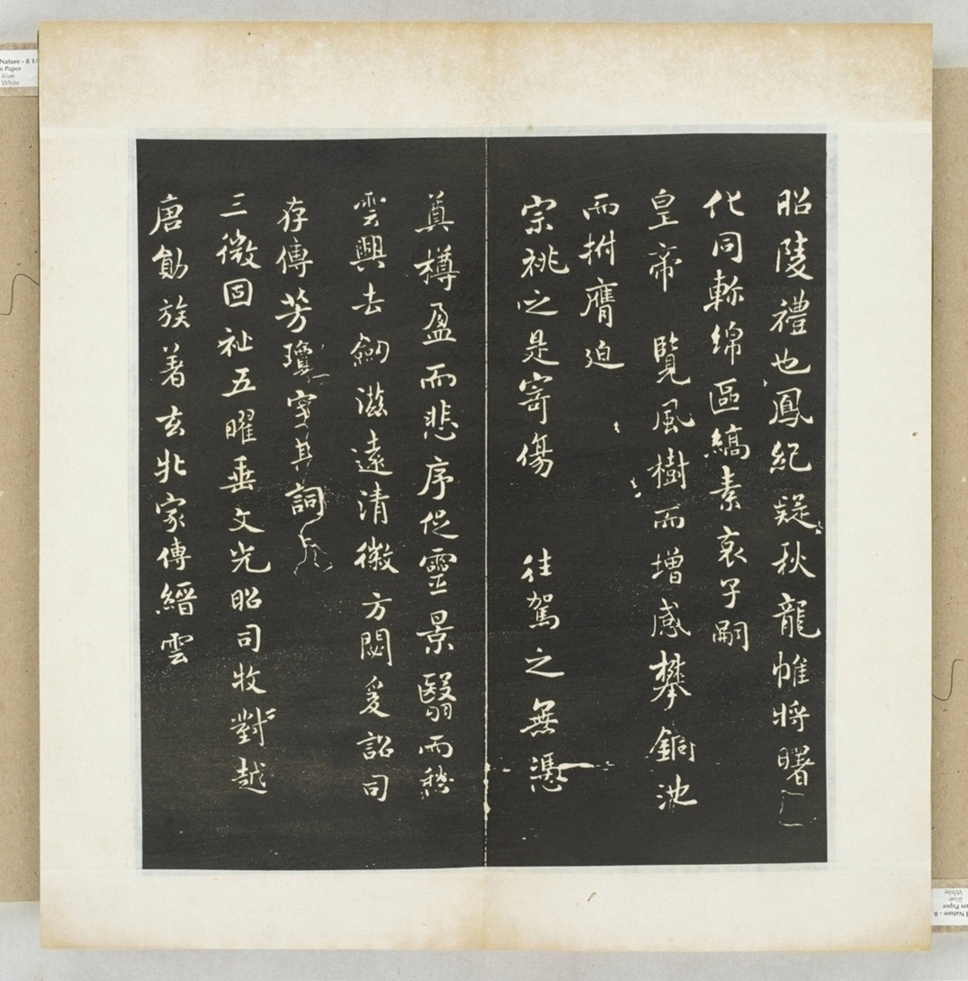 昭陵禮也鳳紀疑秋龍帷將曙
化同軫綿區縞素哀子嗣
皇帝 覽風樹而增感攀銅池
而拊膺迫
宗祧之是寄傷 往駕之無憑
奠樽盈而悲序促靈景翳而愁
雲興去劒滋遠清徽方閟爰詔司
存傳芳瓊字其詞
三微固祉五曜垂文光昭司牧對越
唐勛族著玄丘家傳縉雲
Nature - 8 1/
Paper
Blue
White
Nature - 8
Paper
Blue
White